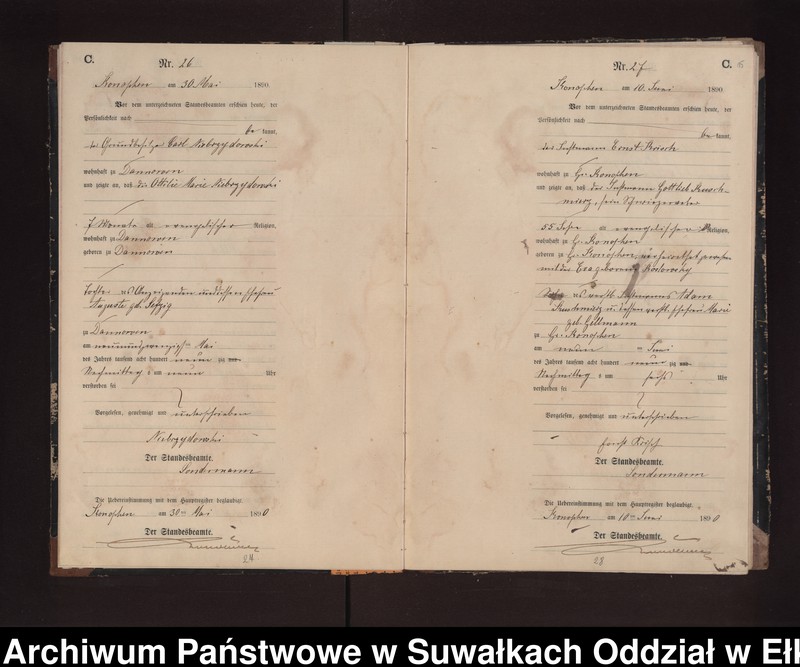 C.
Nr. 26
Konopken am 30 Mai 1890.
Vor dem unterzeichneten Standesbeamten erschien heute, der
Persönlichkeit nach
be kannt,
der Grundbesitzer Carl Niebrzydowski
wohnhaft zu Dannowen
und zeigte an, daß die Ottilie Marie Niebrzydowski
7 Monate alt evangelischer Religion,
wohnhaft zu Dannowen
geboren zu Dannowen
Tochter des Anzeigenden und dessen Ehefrau
Auguste geb.
zu Dannowen
am neunundzwanzigsten Mai
des Jahres tausend acht hundert neunzig
Nachmittags um neun Uhr
verstorben sei
Vorgelesen, genehmigt und unterschrieben
Niebrzydowski
Der Standesbeamte.
Sondermann
Die Uebereinstimmung mit dem Hauptregister beglaubigt.
Konopken am 30ten Mai 1890
Der Standesbeamte.
Sondermann
24
C.
Nr. 27
Konopken am 10. Juni 1890
Vor dem unterzeichneten Standesbeamten erschien heute, der
Persönlichkeit nach
be kannt,
der Instmann Ernst
wohnhaft zu Gr. Konopken
und zeigte an, daß der Instmann Gottlieb
sein Schwiegervater
55 Jahre alt evangelischer Religion,
wohnhaft zu Gr. Konopken
geboren zu Gr. Konopken, verheirathet gewesen
mit der Eva geborene
Sohn des verst. Instmanns Adam
u. dessen verst. Ehefrau Marie
geb. Gellmann
zu Gr. Konopken
am neunten Juni
des Jahres tausend acht hundert neunzig
Nachmittags um sechs Uhr
verstorben sei
Vorgelesen, genehmigt und unterschrieben
Ernst
Der Standesbeamte.
Sondermann
Die Uebereinstimmung mit dem Hauptregister beglaubigt.
Konopken am 10ten Juni 1890
Der Standesbeamte.
Sondermann
Archiwum Państwowe w Suwałkach Oddział w Ełk